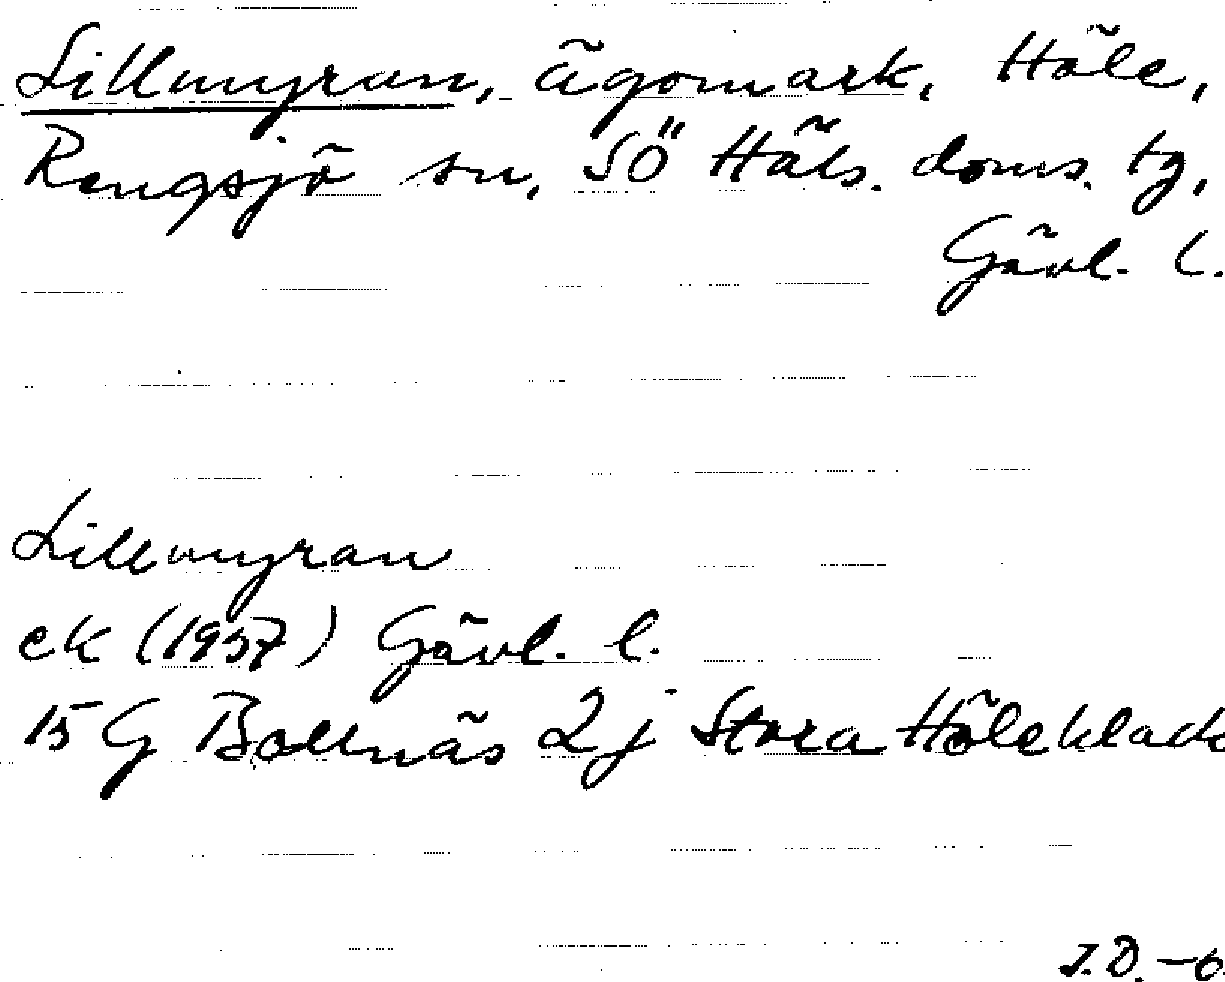 Lillmyran, ägomark, Höle,
Rengsjö sn, SÖ Häls. doms. tg,
Gävl. l.
Lillmyran
ek (1957) Gävl. l.
15 G Bollnäs 2 j Stora Höleklack
J.D. -6